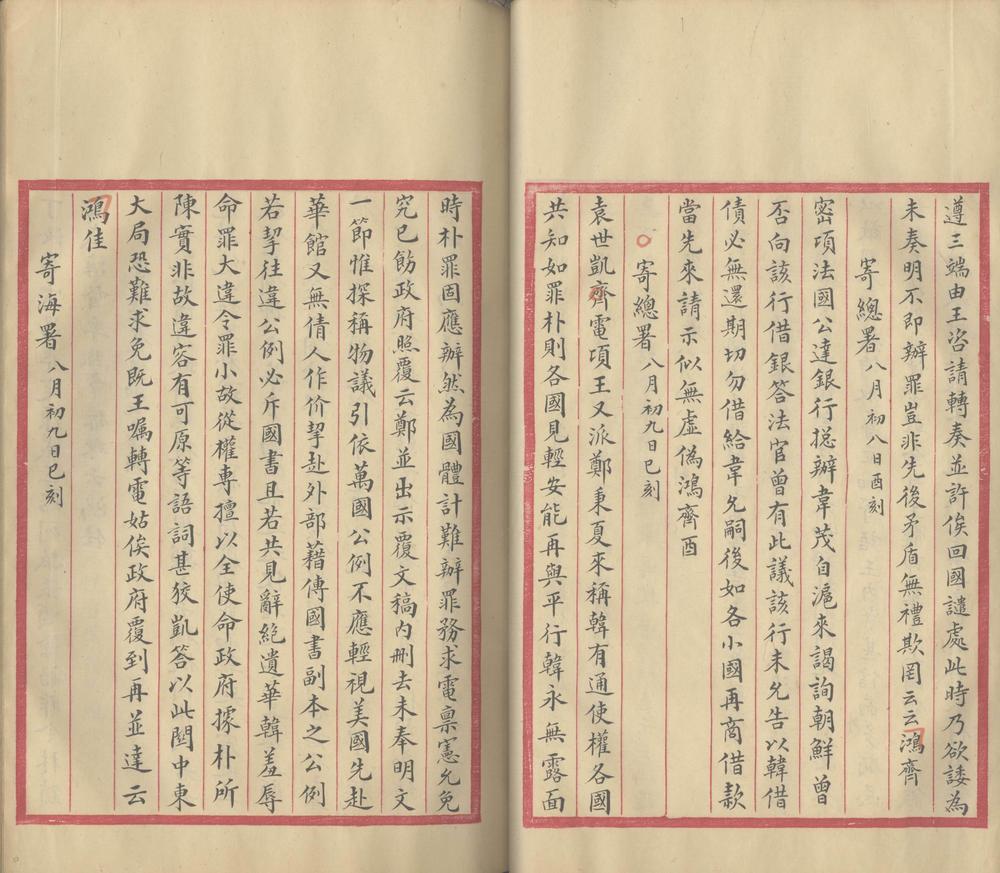 遵三端由王咨請轉奏並許俟回國譴處此時乃欲諉為
未奏明不即辦罪豈非先後矛盾無禮欺罔云云鴻齊
寄總署 八月初八日酉刻
密項法國公達銀行摠辦韋茂自滬來謁詢朝鮮曾
否向該行借銀答法官曾有此議該行未允告以韓借
債必無還期切勿借給韋允嗣後如各小國再商借款
當先來請示似無虛偽鴻齊酉
寄總署 八月初九日巳刻
袁世凱齊電項王又派鄭秉夏來稱韓有通使權各國
共知如罪朴則各國見輕安能再與平行韓永無露面
時朴罪固應辦然為國體計難辦罪務求電稟憲允免
究已飭政府照覆云鄭並出示覆文稿內刪去未奉明文
一節惟探稱物議引依萬國公例不應輕視美國先赴
華館又無倩人作价挈赴外部藉傳國書副本之公例
若挈往違公例必斥國書且若共見辭絕遺華韓羞辱
命罪大違令罪小故從權專擅以全使命政府據朴所
陳實非故違容有可原等語詞甚狡凱答以此閏中東
大局恐難求免既王嘱轉電姑俟政府覆到再並達云
鴻佳
寄海署 八月初九日巳刻